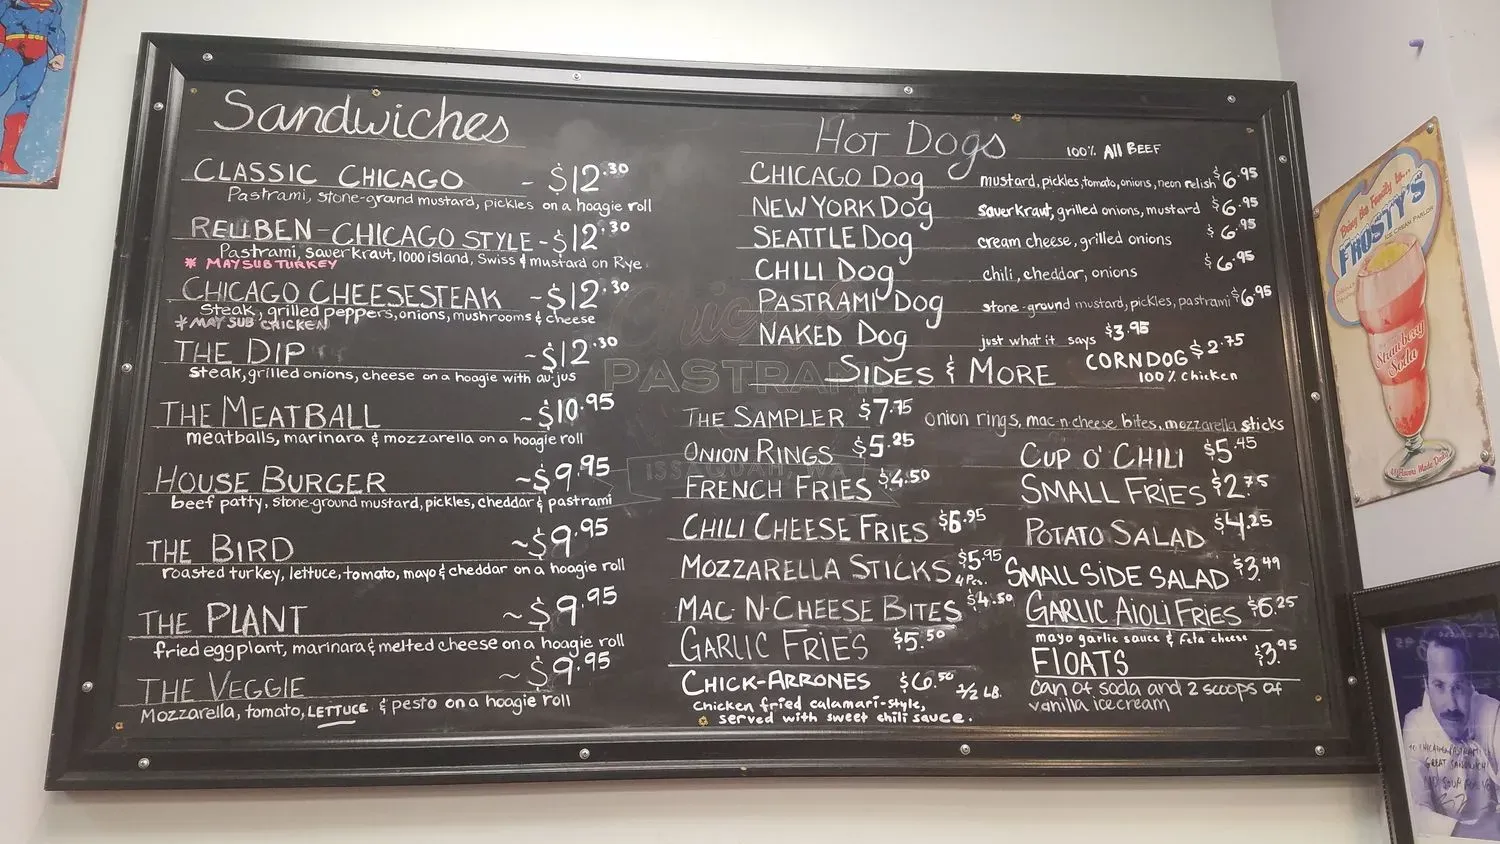 Sandwiches
CLASSIC CHICAGO - $12.30
Pastrami, stone-ground mustard, pickles on a hoagie roll
REUBEN-CHICAGO STYLE-$12.30
Pastrami, Sauerkraut, 1000 island, Swiss & mustard on Rye
* MAY SUB TURKEY
CHICAGO CHEESESTEAK ~$12.30
Steak, grilled peppers, onions, mushrooms & cheese
* MAY SUB CHICKEN
THE DIP ~$12.30
steak, grilled onions, cheese on a hoagie with au-jus
THE MEATBALL ~$10.95
meatballs, marinara & mozzarella on a hoagie roll
HOUSE BURGER ~$9.95
beef patty, stone-ground mustard, pickles, cheddar & pastrami
THE BIRD ~$9.95
roasted turkey, lettuce, tomato, mayo & cheddar on a hoagie roll
THE PLANT ~$9.95
fried eggplant, marinara & melted cheese on a hoagie roll
THE VEGGIE ~$9.95
Mozzarella, tomato, LETTUCE & pesto on a hoagie roll
HOT DOGS 100% All BEEF
CHICAGO DOg mustard, pickles, tomato, onions, neon relish $6.95
NEW YORK DOg sauerkraut, grilled onions, mustard $6.95
SEATTLE DOg cream cheese, grilled onions $6.95
CHILI DOg chili, cheddar, onions $6.95
PASTRAMI DOg stone-ground mustard, pickles, pastrami $6.95
NAKED DOg just what it says $3.95
CORNDOG $2.75
100% chicken
SIDES & MORE
THE SAMPLER $7.75 onion rings, mac-n-cheese bites, mozzarella sticks
ONION RINGS $5.25
FRENCH FRIES $4.50
CHILI CHEESE FRIES $6.95
MOZZARELLA STICKS $5.95
4 Pcs.
MAC-N-CHEESE BITES $4.50
GARLIC FRIES $5.50
CHICK-ARRONES $6.50 1/2 LB.
Chicken fried calamari-style,
served with sweet chili sauce.
CUP O' CHILI $5.45
SMALL FRIES $2.75
POTATO SALAD $4.25
SMALL SIDE SALAD $3.49
GARLIC AIOLI FRIES $6.25
mayo garlic sauce & feta cheese
FLOATS $3.95
Can of soda and 2 scoops of
vanilla ice cream
Chicago
PASTRAMI
ISSAQUAH, WA
FROSTY'S
ICE CREAM PARLOR
Strawberry
Soda
GREAT SANDWICH!